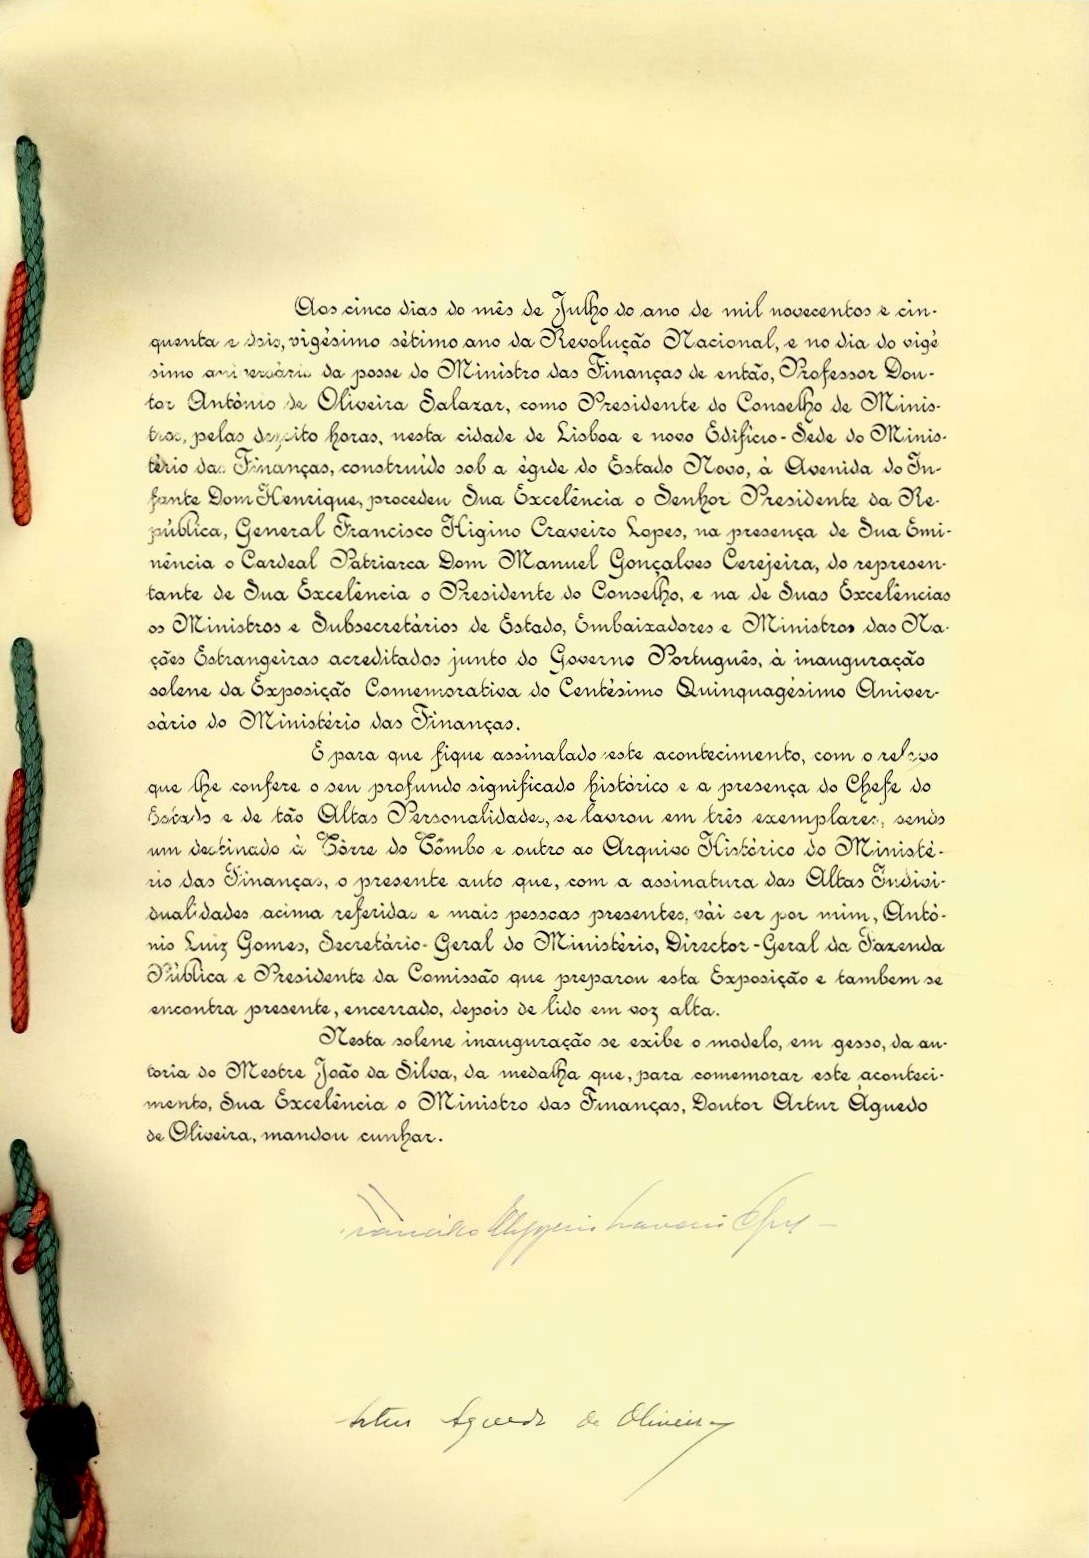 Aos cinco dias do mês de Julho do ano de mil novecentos e cin-
quenta e dois, vigésimo sétimo ano da Revolução Nacional, e no dia do vigé
simo aniversário da posse do Ministro das Finanças de então, Professor Dou-
tor António de Oliveira Salazar, como Presidente do Conselho de Minis-
tros, pelas dezoito horas, nesta cidade de Lisboa e novo Edifício-Sede do Minis-
tério das Finanças, construído sob a égide do Estado Novo, à Avenida do In-
fante Dom Henrique, procedeu Sua Excelência o Senhor Presidente da Re-
pública, General Francisco Higino Craveiro Lopes, na presença de Sua Emi-
nência o Cardeal Patriarca Dom Manuel Gonçalves Cerejeira, do represen-
tante de Sua Excelência o Presidente do Conselho, e na de Suas Excelências
os Ministros e Subsecretários de Estado, Embaixadores e Ministros das Na-
ções Estrangeiras acreditados junto do Governo Português, à inauguração
solene da Exposição Comemorativa do Centésimo Quinquagésimo Aniver-
sário do Ministério das Finanças.
E para que fique assinalado este acontecimento, com o relevo
que lhe confere o seu profundo significado histórico e a presença do Chefe do
Estado e de tão Altas Personalidades, se lavrou em três exemplares, sendo
um destinado à Tôrre do Tômbo e outro ao Arquivo Histórico do Ministé-
rio das Finanças, o presente auto que, com a assinatura das Altas Indivi-
dualidades acima referidas e mais pessoas presentes, vái ser por mim, Antó-
nio Luiz Gomes, Secretário-Geral do Ministério, Director-Geral da Fazenda
Pública e Presidente da Comissão que preparou esta Exposição e tambem se
encontra presente, encerrado, depois de lido em voz alta.
Nesta solene inauguração se exibe o modelo, em gesso, da au-
toria do Mestre João da Silva, da medalha que, para comemorar este aconteci-
mento, Sua Excelência o Ministro das Finanças, Doutor Artur Águedo
de Oliveira, mandou cunhar.
Francisco Higino Craveiro Lopes
Artur Aguedo de Oliveira